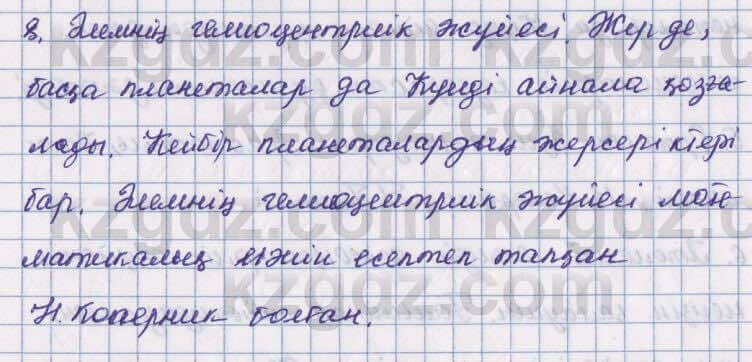 8. Әлемнің гелиоцентрлік жүйесі. Жер де,
басқа планеталар да Күнді айнала қозға-
лады. Кейбір планеталардың жерсеріктері
бар. Әлемнің гелиоцентрлік жүйесі мате-
матикалық жәйін есептеп тапқан
Н. Коперник болған.
kzgdz.com